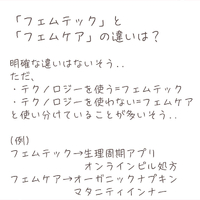 「フェムテック」と
「フェムケア」の違いは？
明確な違いはないそう..
ただ、
・テクノロジーを使う=フェムテック
・テクノロジーを使わない=フェムケア
と使い分けていることが多いそう..
(例)
フェムテック→生理周期アプリ
オンラインピル処方
フェムケア→オーガニックナプキン
マタニティインナー